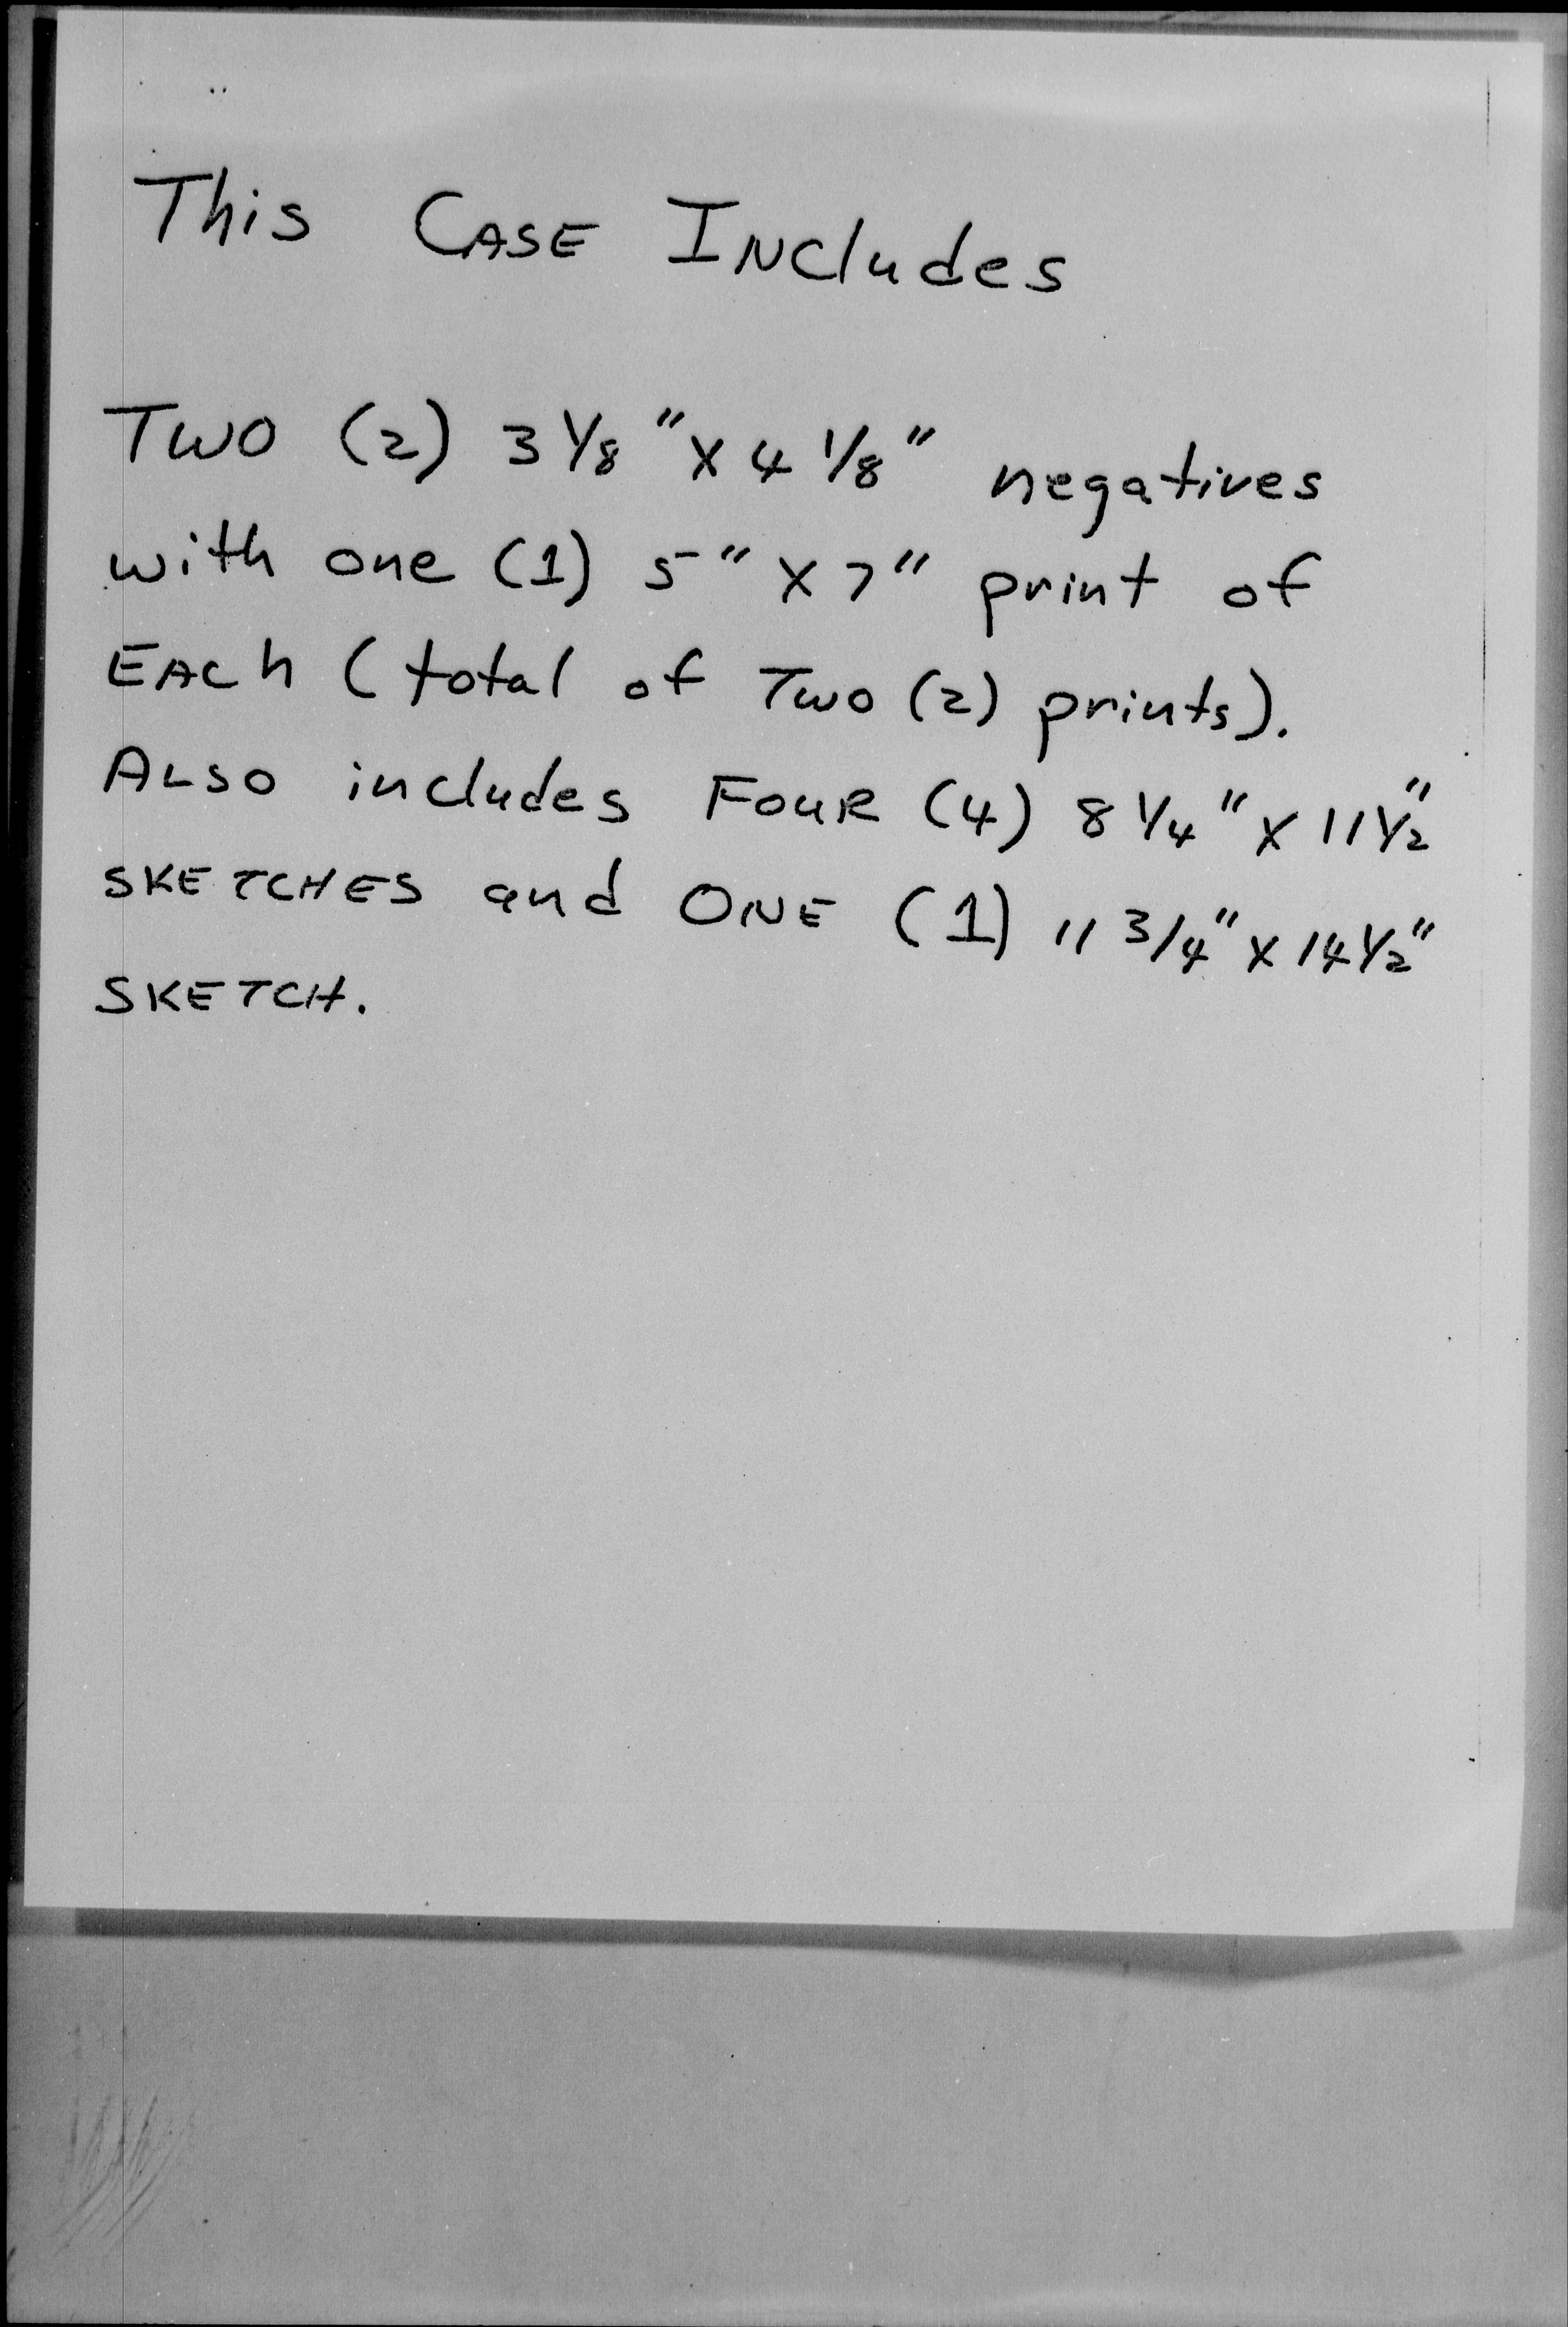 This CASE INCludes
TWO (2) 3 1/8" X 4 1/8" negatives
with one (1) 5" X 7" print of
EACh (total of Two (2) prints).
ALSO includes FOUR (4) 8 1/4" X 11 1/2"
SKETCHES and ONE (1) 11 3/4" X 14 1/2"
SKETCH.